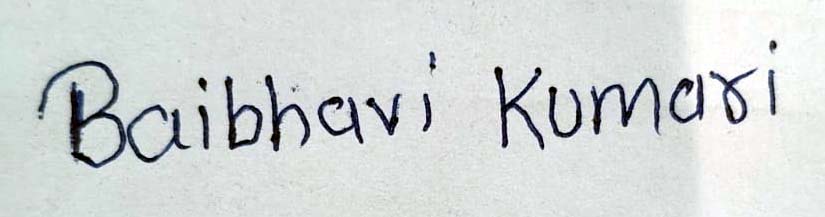 Baibhavi Kumari